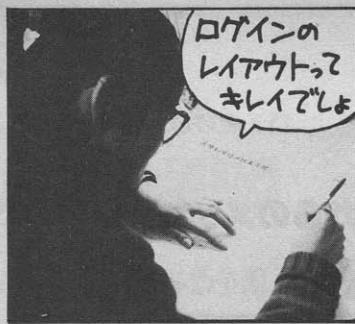 ログインの
レイアウトって
キレイでしょ